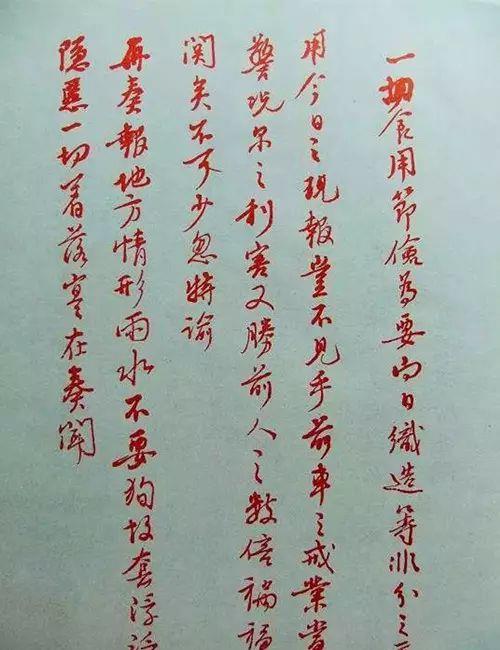 一切食用節儉為要向日織造等非分之
用今日之現報豈不見乎前車之戒業當
警況尔之利害又勝前人之數倍禍福
関矣不可少忽特諭
再奏報地方情形雨水不要狥故套浮
隱一切着落寔在奏聞